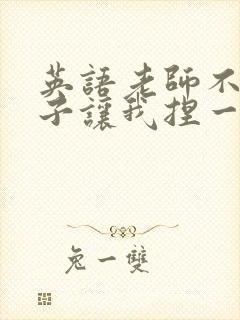 英語老師不
子讓我捏一
兔一雙